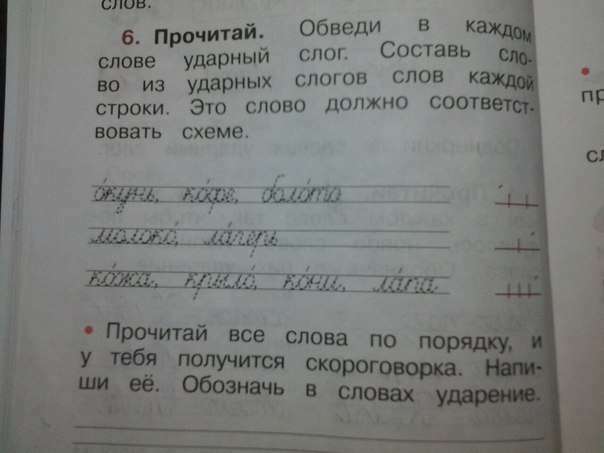 слов.
6. Прочитай. Обведи в каждом
слове ударный слог. Составь сло-
во из ударных слогов слов каждой
строки. Это слово должно соответст-
вовать схеме.
о́кунь, ко́фе, боло́то
молоко́, ла́герь
ко́жа, крыло́, ко́чи, ла́па
• Прочитай все слова по порядку, и
у тебя получится скороговорка. Напи-
ши её. Обозначь в словах ударение.
•
пр
сл